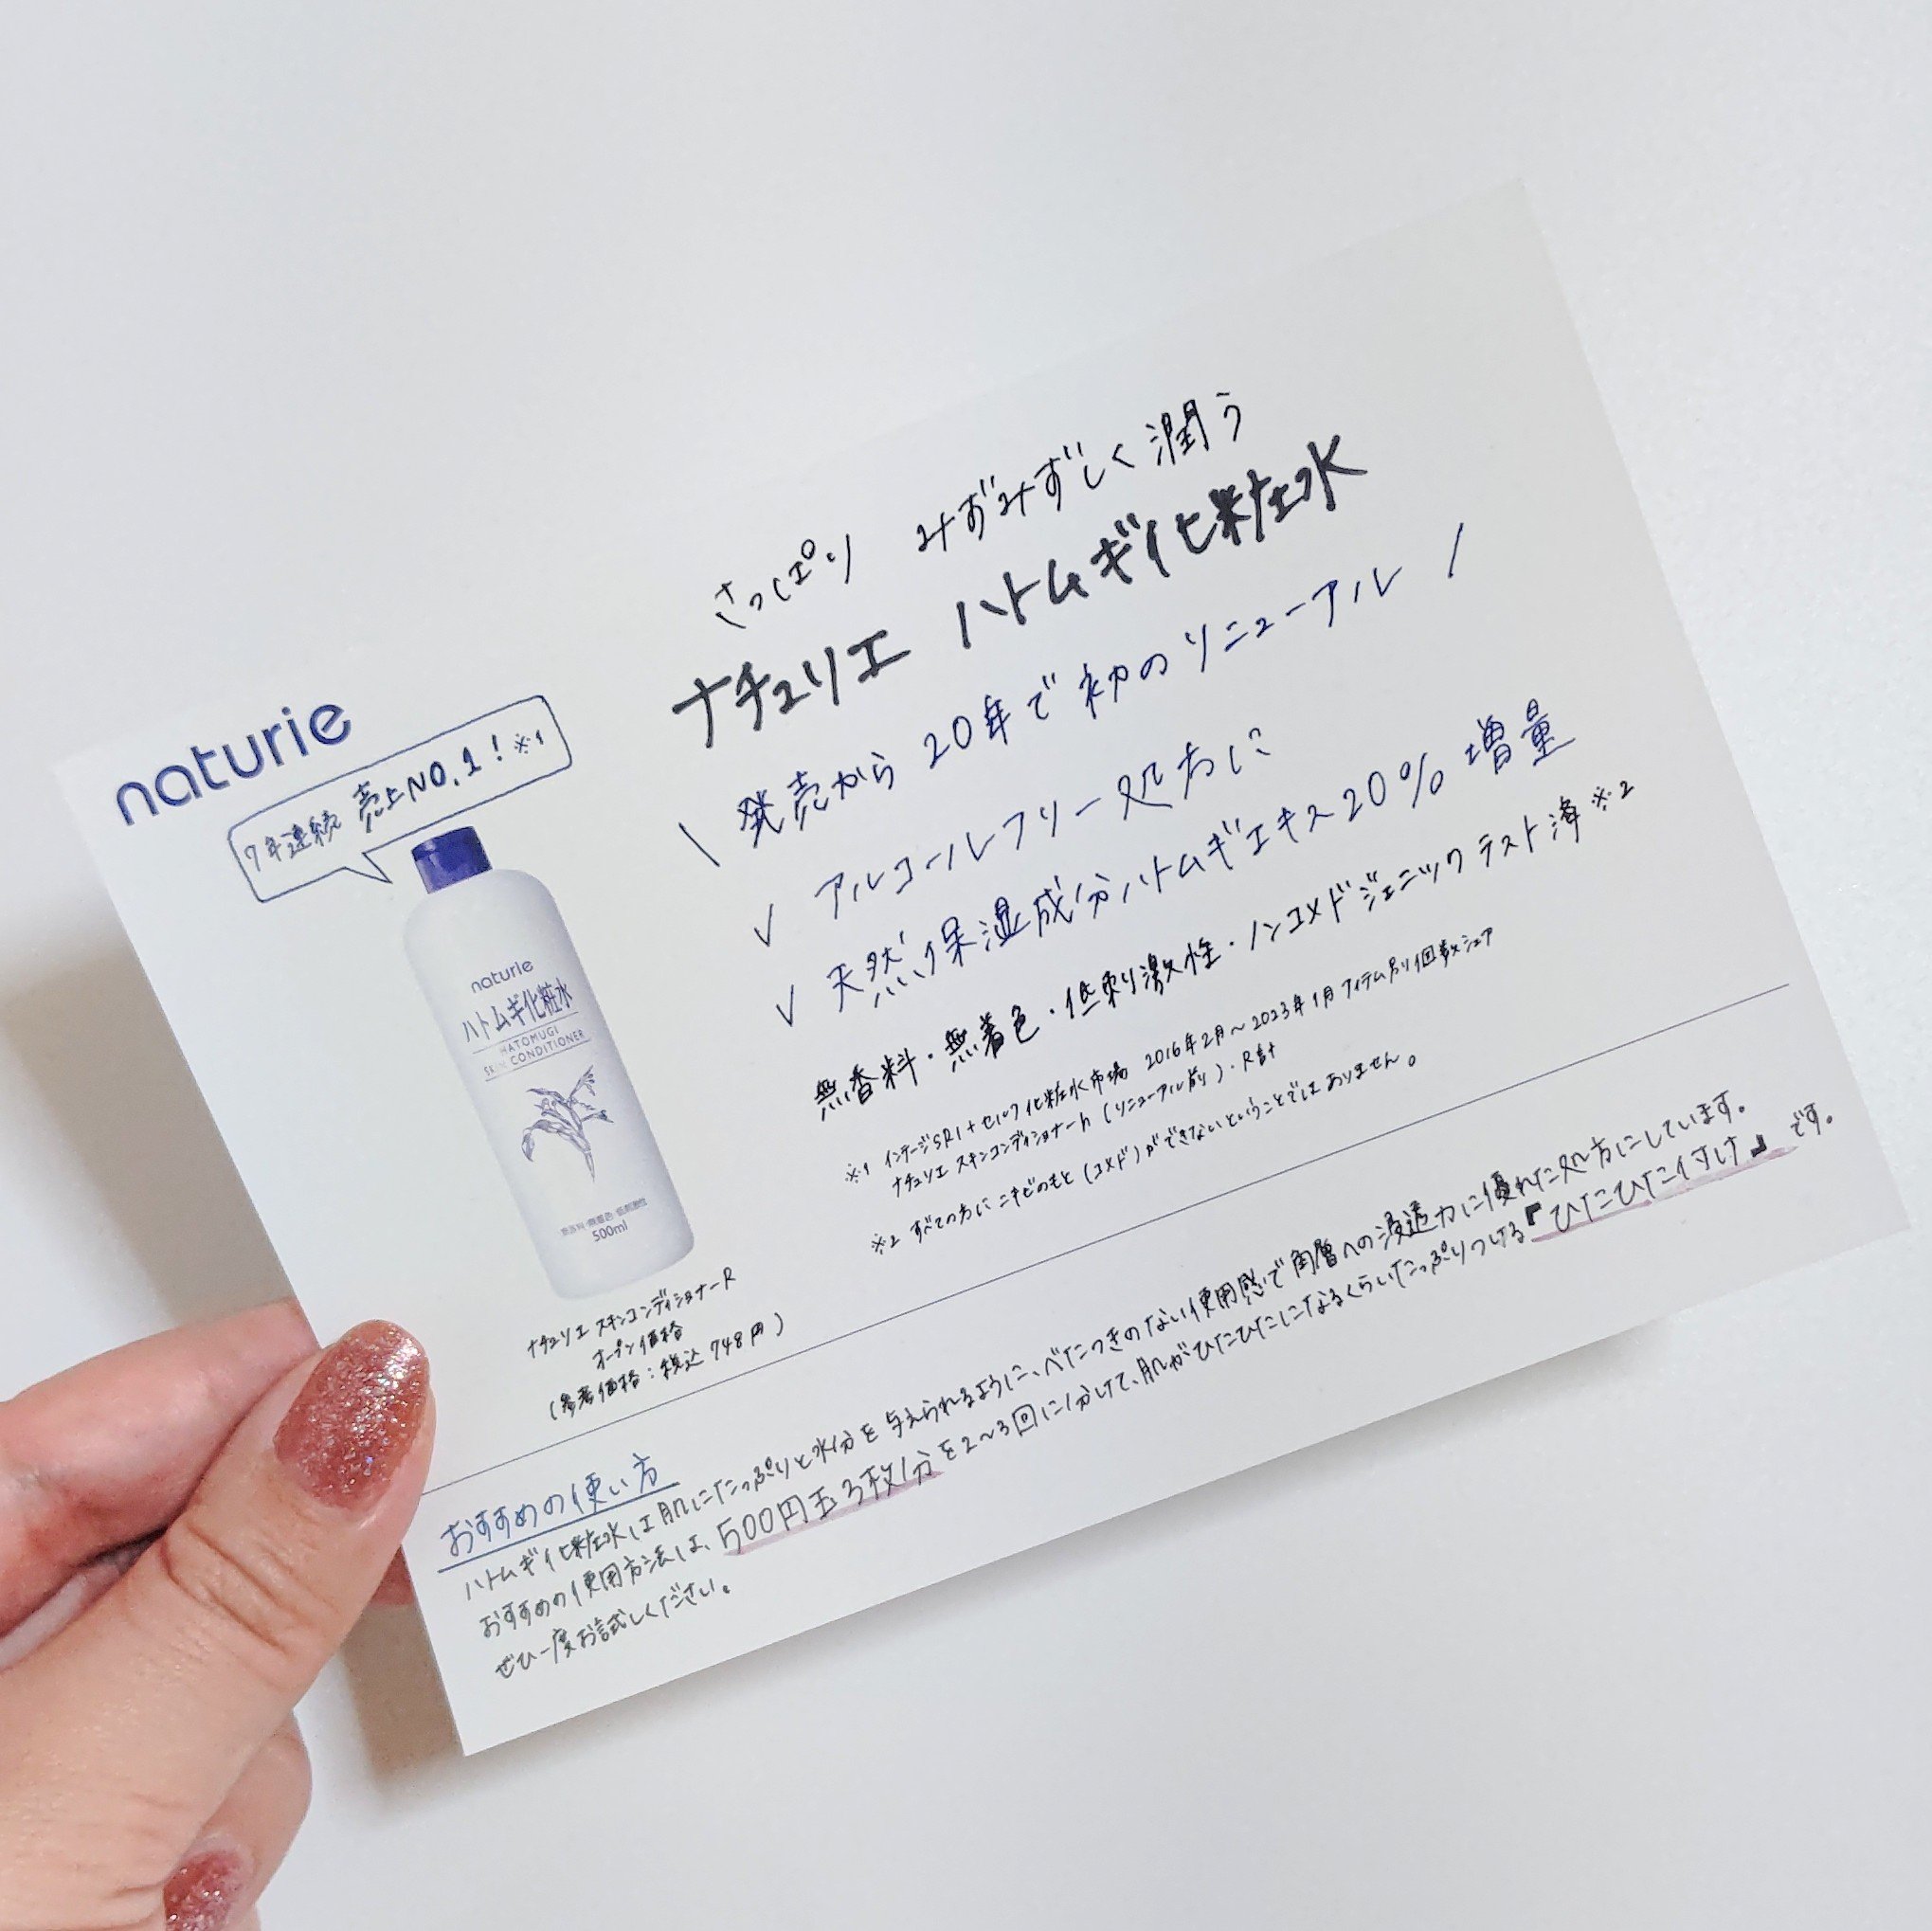 naturie
7年連続 売上NO.1!※1
naturie
ハトムギ化粧水
HATOMUGI
SKIN CONDITIONER
無香料・無着色・低刺激性
500ml
ナチュリエ スキンコンディショナーR
オープン価格
(参考価格:税込748円)
さっぱり みずみずしく潤う
ナチュリエ ハトムギ化粧水
\ 発売から20年で初のリニューアル /
✓ アルコールフリー処方に
✓ 天然保湿成分ハトムギエキス20%増量
無香料・無着色・低刺激性・ノンコメドジェニックテスト済※2
※1 インテージSRI+セルフ化粧水市場 2016年2月〜2023年1月アイテム別個数シェア
ナチュリエ スキンコンディショナーh(リニューアル前)・R計
※2 すべての方にニキビのもと(コメド)ができないということではありません。
おすすめの使い方
ハトムギ化粧水は肌にたっぷりと水分を与えられるように、べたつきのない使用感で角層への浸透力に優れた処方にしています。
おすすめの使用方法は、500円玉3枚分を2〜3回に分けて、肌がひたひたになるくらいたっぷりつける『ひたひた付け』です。
ぜひ一度お試しください。